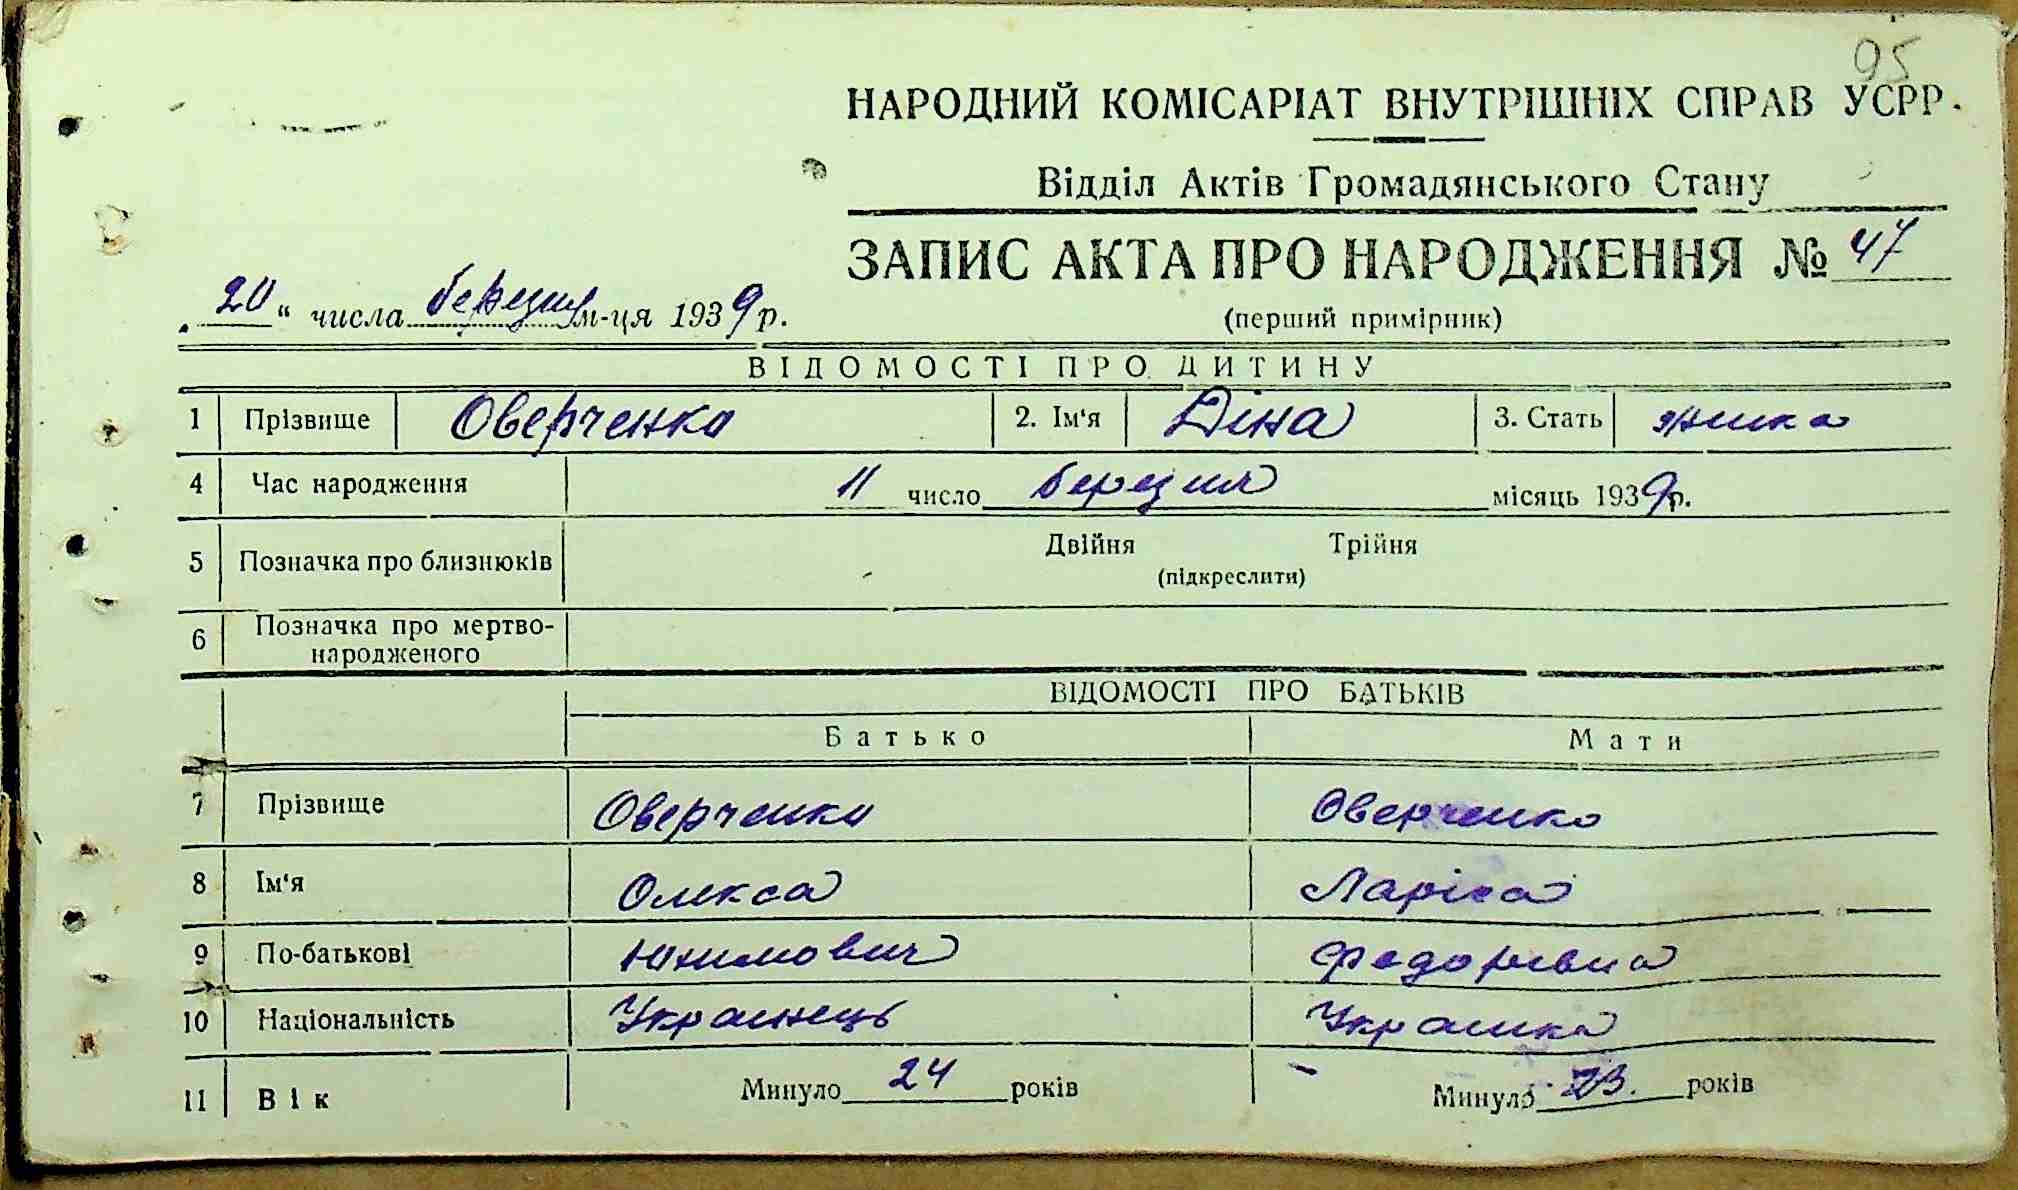 95
НАРОДНИЙ КОМІСАРІАТ ВНУТРІШНІХ СПРАВ УСРР.
Відділ Актів Громадянського Стану
ЗАПИС АКТА ПРО НАРОДЖЕННЯ № 47
„20“ числа березня м-ця 1939 р.
(перший примірник)
ВІДОМОСТІ ПРО ДИТИНУ
1 Прізвище Оверченко 2. Ім'я Діна 3. Стать жінка
4 Час народження 11 число березня місяць 1939 р.
5 Позначка про близнюків Двійня Трійня
(підкреслити)
6 Позначка про мертво-
народженого
ВІДОМОСТІ ПРО БАТЬКІВ
Батько Мати
7 Прізвище Оверченко Оверченко
8 Ім'я Олекса Ларіса
9 По-батькові Юхимович Федорівна
10 Національність Українець Українка
11 Вік Минуло 24 років Минуло 23. років